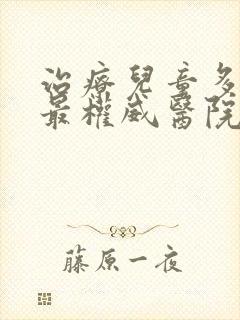 治療兒童多
最權威醫院
藤原一夜